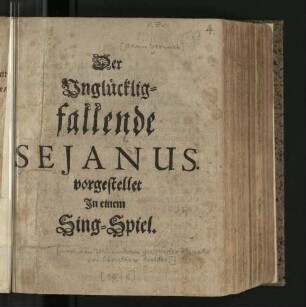 4.
Der
Vnglücklig-
fallende
SEJANUS.
vorgestellet
In einem
Sing-Spiel.